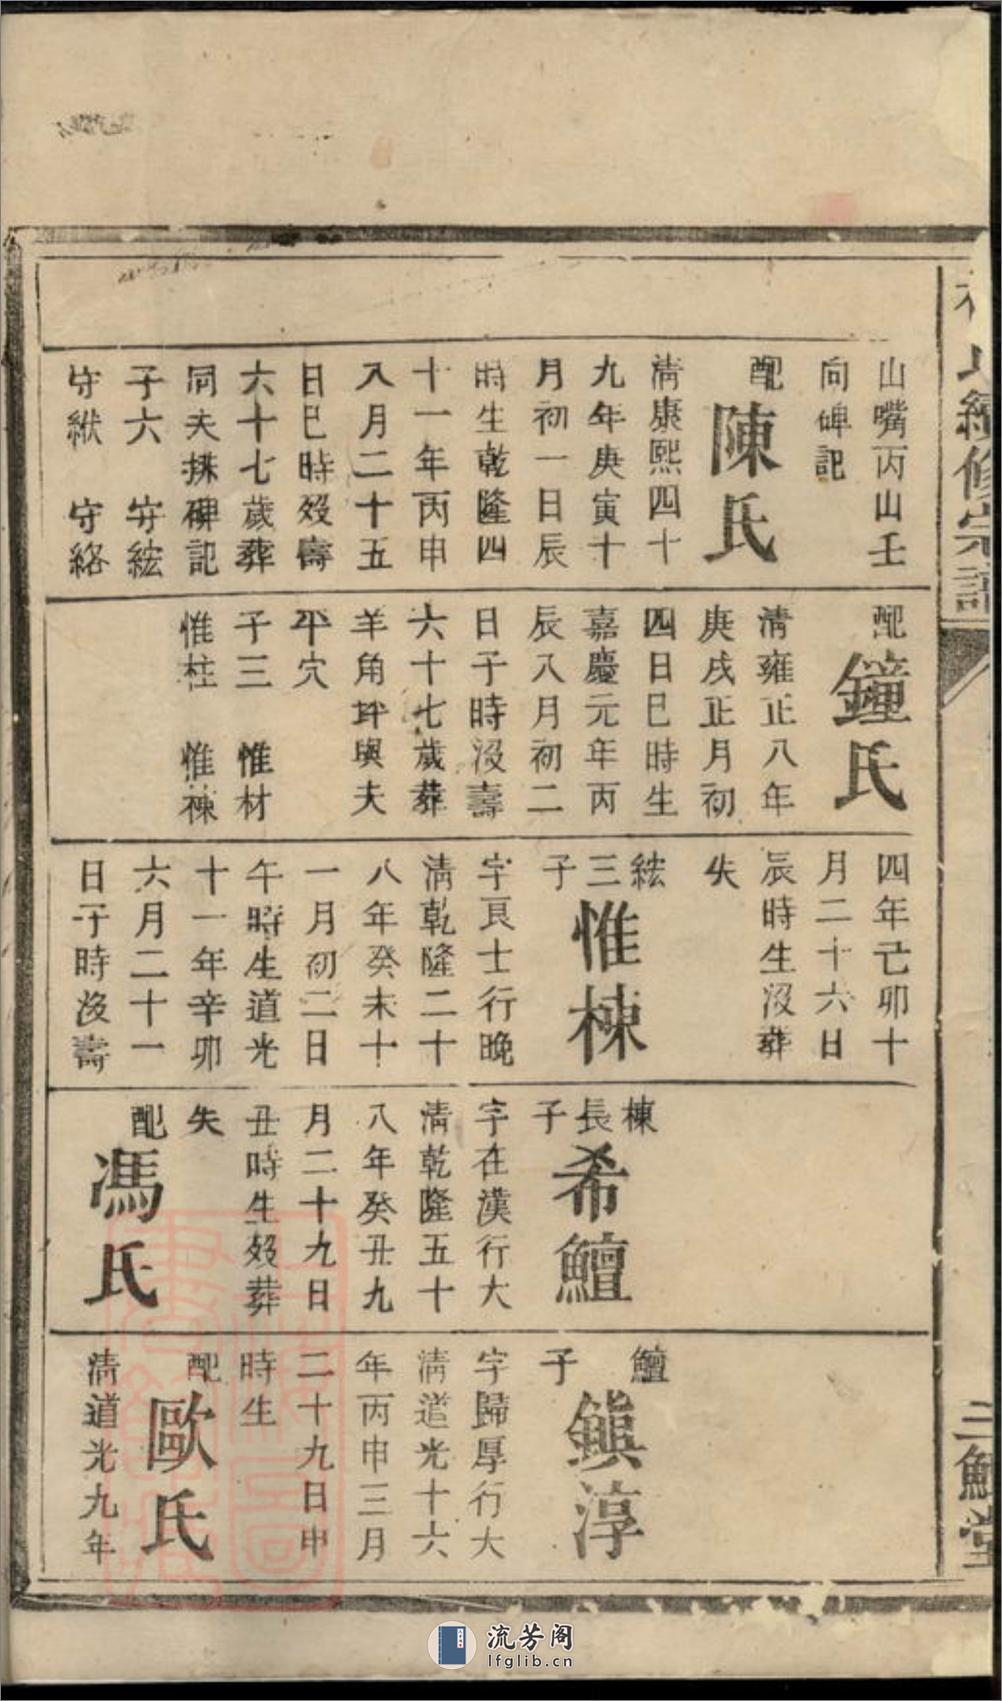 續修宗譜
三鱣堂
山嘴丙山壬
向碑記
配
陳氏
清康熙四十
九年庚寅十
月初一日辰
時生乾隆四
十一年丙申
八月二十五
日巳時歿壽
六十七歲葬
同夫㙇碑記
子六 守紘
守絥 守絡
配
鐘氏
清雍正八年
庚戌正月初
四日巳時生
嘉慶元年丙
辰八月初二
日子時沒壽
六十七歲葬
羊角坪與夫
平穴
子三 惟材
惟柱 惟棟
四年己卯十
月二十六日
辰時生沒葬
失
紘三子
惟棟
字良士行晚
清乾隆二十
八年癸未十
一月初二日
午時生道光
十一年辛卯
六月二十一
日子時沒壽
棟長子
希鱣
字在漢行大
清乾隆五十
八年癸丑九
月二十九日
丑時生歿葬
失
配
馮氏
鱣子
鎮淳
字歸厚行大
清道光十六
年丙申三月
二十九日申
時生
配
歐氏
清道光九年
流芳阁
lfglib.cn